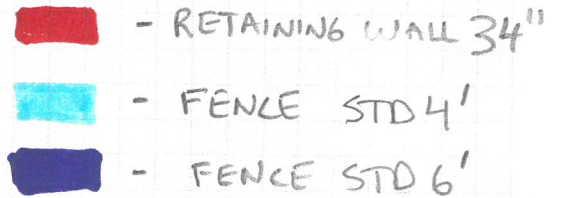 - RETAINING WALL 34"
- FENCE STD 4'
- FENCE STD 6'